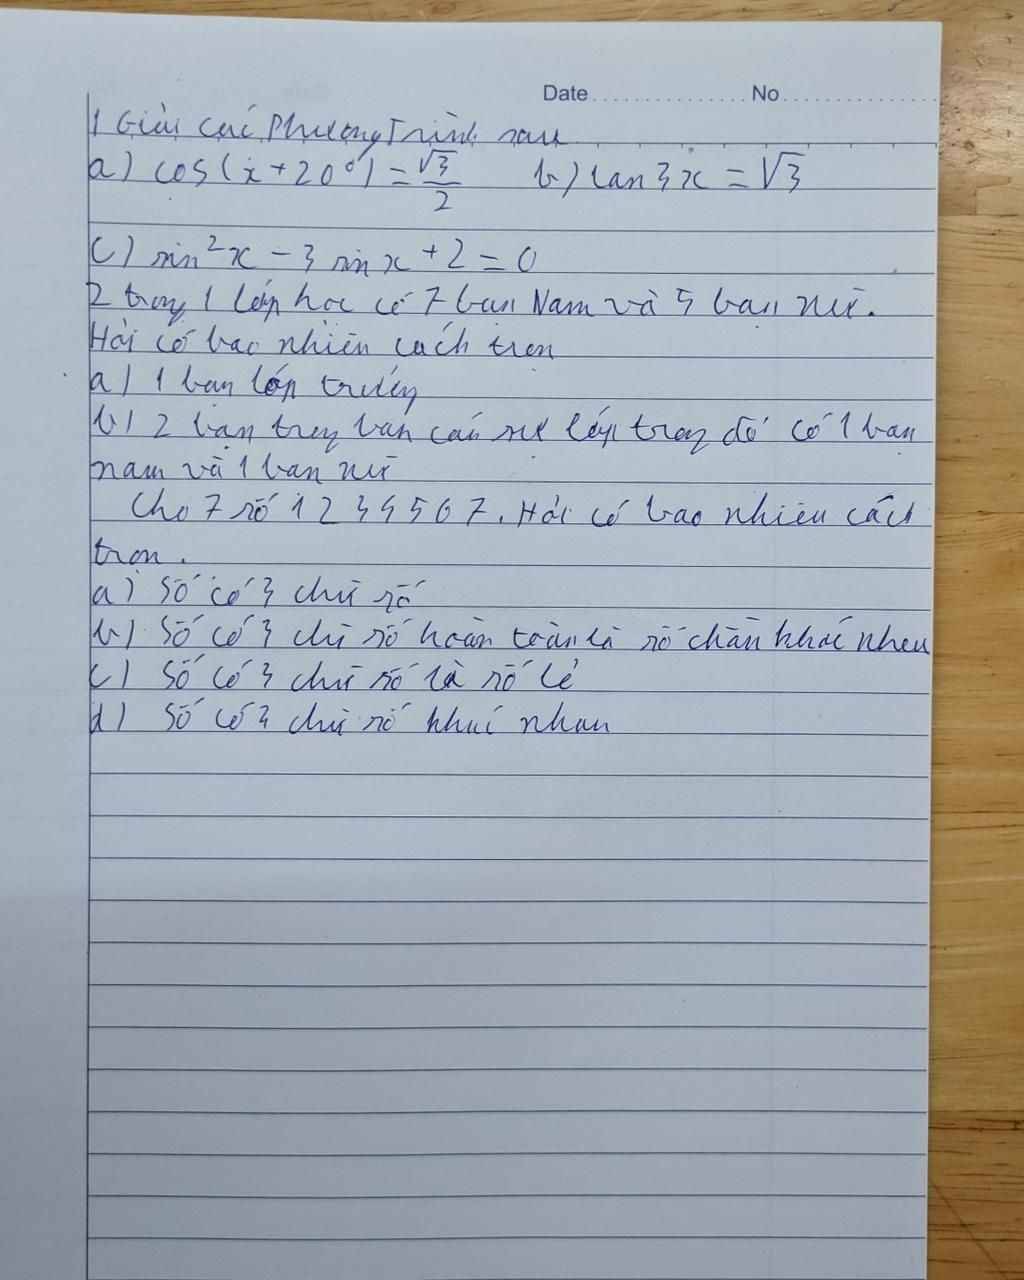 Date ............... No ...............
1 Giải các Phương Trình sau
a) cos(x + 20°) = √3/2 b) tan 3x = √3
c) sin²x - 3 sin x + 2 = 0
2 trong 1 lớp học có 7 bạn Nam và 5 bạn nữ.
Hỏi có bao nhiên cách trọn
a) 1 bạn lớp trưởng
b) 2 bạn trong ban cán sự lớp trong đó có 1 bạn
nam và 1 bạn nữ
Cho 7 số 1 2 3 4 5 6 7. Hỏi có bao nhiêu cách
trọn.
a) Số có 3 chữ số
b) Số có 3 chữ số hoàn toàn là số chẵn khác nhau
c) Số có 3 chữ số là số lẻ
d) Số có 3 chữ số khác nhau